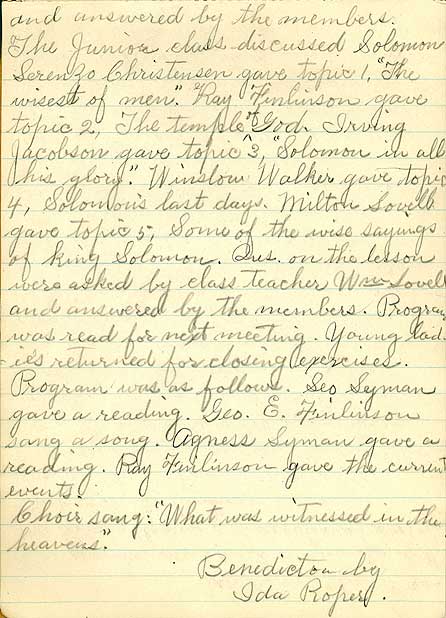 and answered by the members.
The Junior class discussed Solomon
Serenzo Christensen gave topic 1, "The
wisest of men". Ray Finlinson gave
topic 2, The temple of God. Irving
Jacobson gave topic 3, "Solomon in all
his glory." Winslow Walker gave topic
4, Solomon's last days. Milton Lovell
gave topic 5, Some of the wise sayings
of king Solomon. Qus. on the lesson
were asked by class teacher Wm Lovell
and answered by the members. Program
was read for next meeting. Young lad-
ies returned for closing exercises.
Program was as follows. Geo Lyman
gave a reading. Geo. E. Finlinson
sang a song. Agness Lyman gave a
reading. Ray Finlinson gave the current
events.
Choir sang: "What was witnessed in the
heavens".
Benedicton by
Ida Roper.